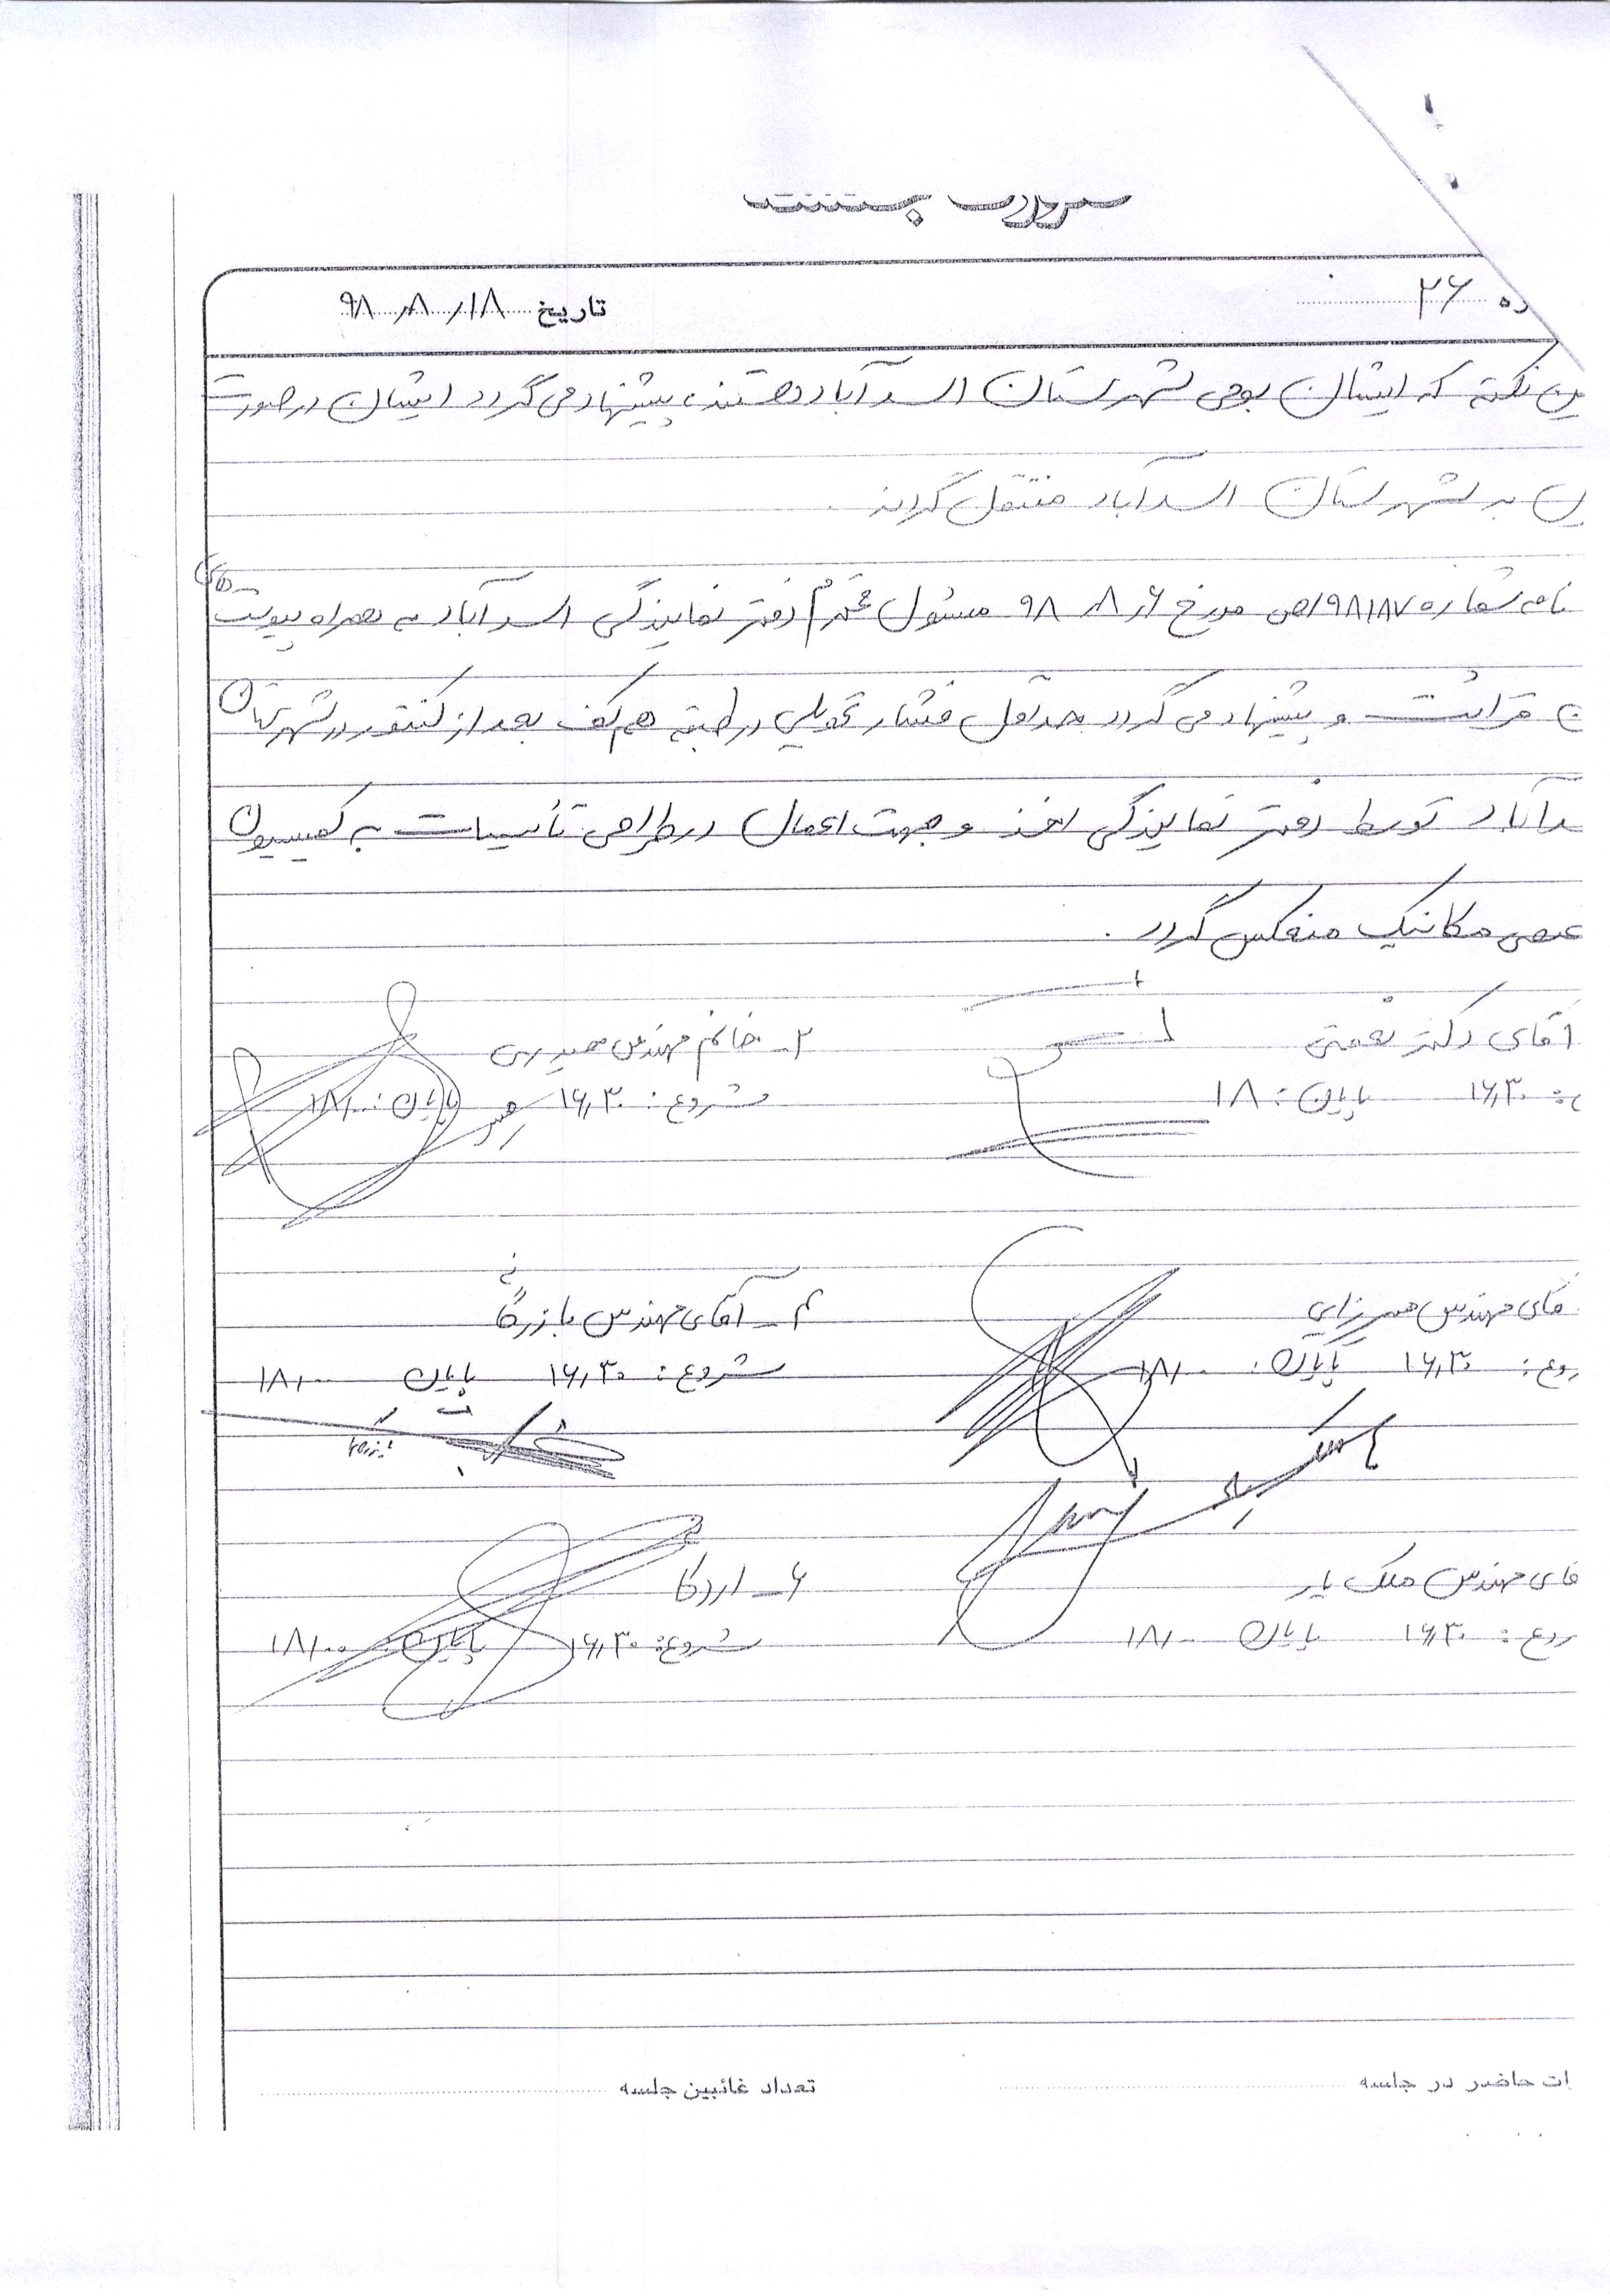 ره ۲۶ تاریخ ۹۸/۸/۱۸
ین نکته که ایشان بومی شهرستان اسدآباد هستند، پیشنهاد می گردد ایشان در صورت
ن به شهرستان اسدآباد منتقل گردند.
نامه شماره ۹۸۱۸۷/ص مورخ ۹۸/۸/۶ مسئول محترم دفتر نمایندگی اسدآباد به همراه پیوست های
ن قرائت و پیشنهاد می گردد حداقل فشار تحویلی در طبقه هم کف بعد از کنتور در شهرستان
سدآباد توسط دفتر نمایندگی اخذ و جهت اعمال در طراحی تاسیسات به کمیسیون
مکانیک منعکس گردد.
آقای دکتر نعمتی ۲ـ خانم مهندس
: ۱۶,۳۰ پایان: ۱۸ شروع: ۱۶,۳۰ پایان: ۱۸,۰۰
قای مهندس میرزایی ۴ـ آقای مهندس بازرگانی
روع: ۱۶,۳۰ پایان: ۱۸,۰۰ شروع: ۱۶,۳۰ پایان ۱۸,۰۰
قای مهندس ملک یار ۶ـ
روع: ۱۶,۳۰ پایان ۱۸,۰۰ شروع: ۱۶,۳۰ پایان: ۱۸,۰۰
ات حاضر در جلسه تعداد غائبین جلسه